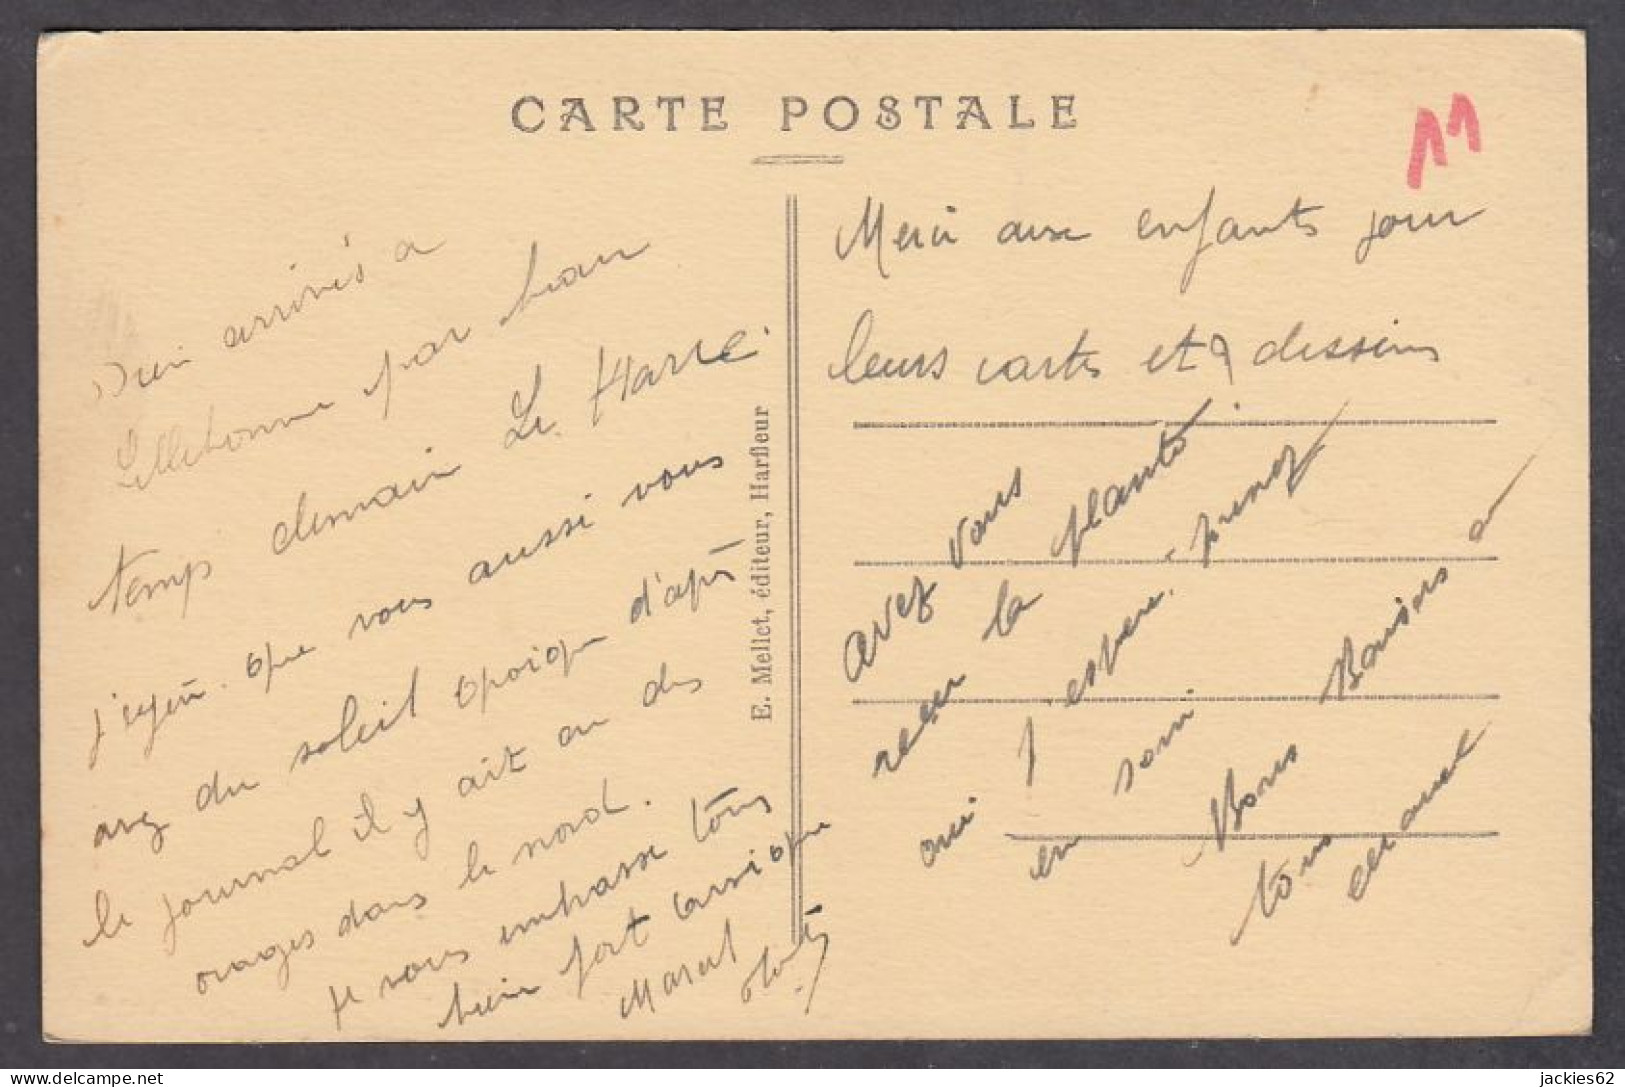 CARTE POSTALE
11
Bien arrivés a
Lillebonne par beau
temps demain Le Havre.
j'espère que vous aussi vous
avez du soleil quoique d'après
le journal il y ait eu des
orages dans le nord.
Je vous embrasse tous
bien fort ainsi que
Marcel
E. Mellet, éditeur, Harfleur
Merci aux enfants pour
leurs cartes et dessins
avez vous
reçu la plante
oui j'espère. prenez
en soin
Bons Baisers a
tous